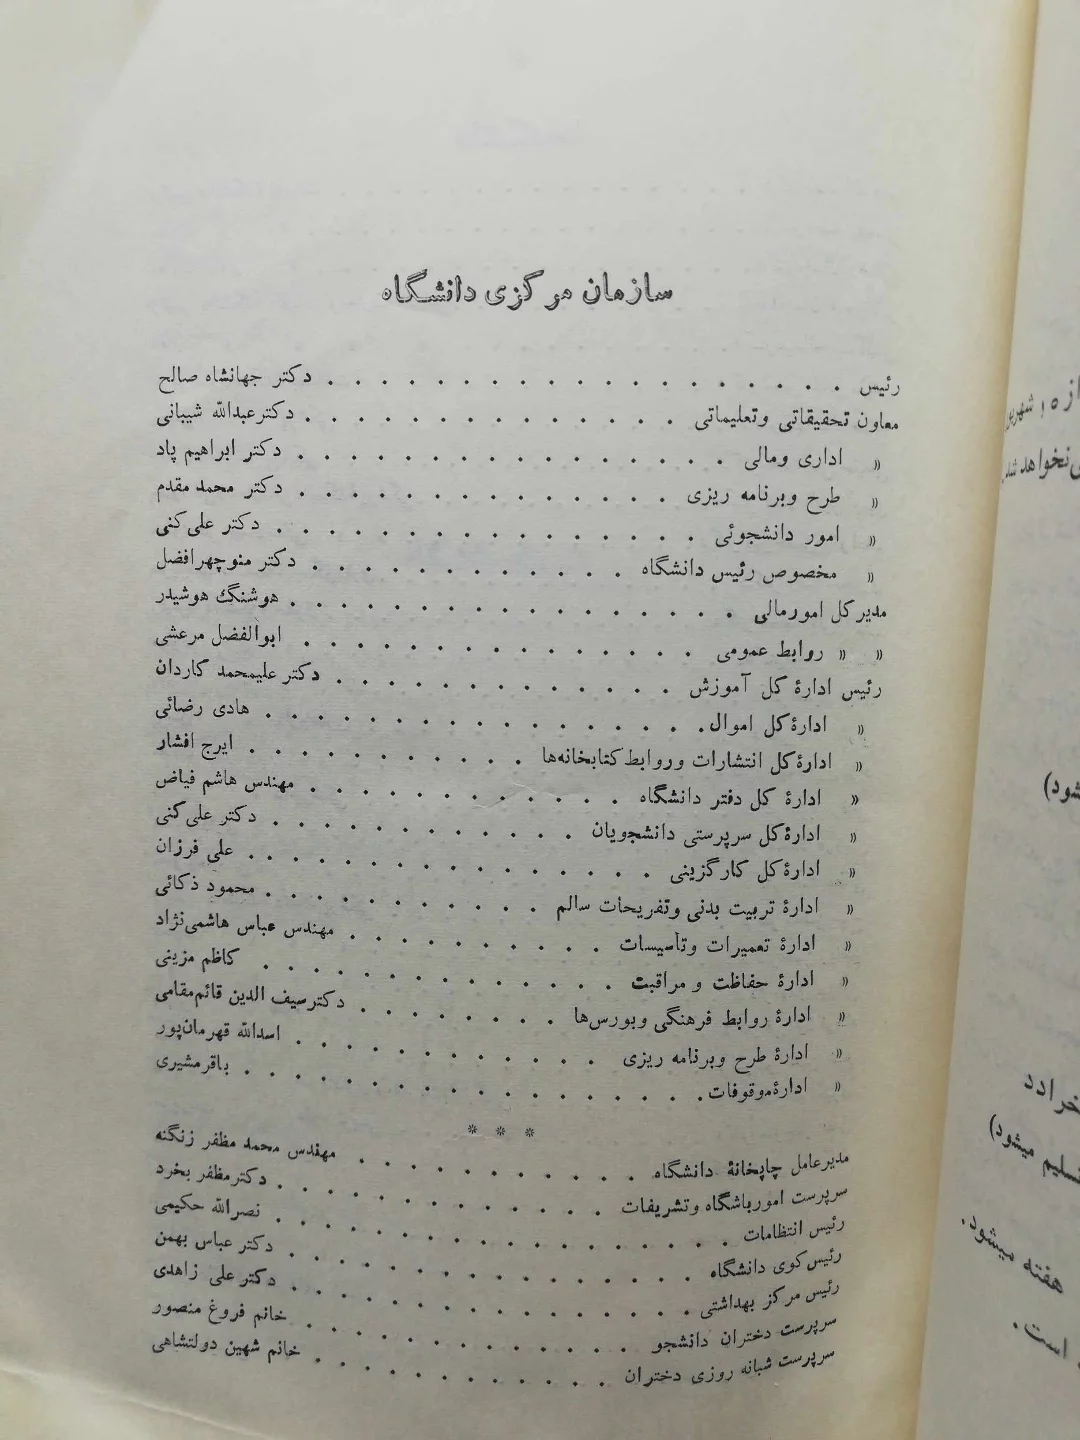 سازمان مرکزی دانشگاه
رئیس . . . . . . . . . . . . . . . . . . دکتر جهانشاه صالح
معاون تحقیقاتی وتعلیماتی . . . . . . . . . . . . . . دکترعبدالله شیبانی
» اداری ومالی . . . . . . . . . . . . . . . . دکتر ابراهیم پاد
» طرح وبرنامه ریزی . . . . . . . . . . . . . . دکتر محمد مقدم
» امور دانشجوئی . . . . . . . . . . . . . . . . دکتر علی کنی
» مخصوص رئیس دانشگاه . . . . . . . . . . . . دکتر منوچهرافضل
مدیرکل امورمالی . . . . . . . . . . . . . . . . . هوشنگ هوشیدر
» » روابط عمومی . . . . . . . . . . . . . . . ابوالفضل مرعشی
رئیس ادارهٔ کل آموزش . . . . . . . . . . . . . دکتر علیمحمد کاردان
» ادارهٔکل اموال . . . . . . . . . . . . . . . . . هادی رضائی
» ادارهٔکل انتشارات وروابط کتابخانه‌ها . . . . . . . . . . ایرج افشار
» ادارهٔ کل دفتر دانشگاه . . . . . . . . . . . . مهندس هاشم فیاض
» ادارهٔکل سرپرستی دانشجویان . . . . . . . . . . . دکتر علی کنی
» ادارهٔکل کارگزینی . . . . . . . . . . . . . . . علی فرزان
» ادارهٔ تربیت بدنی وتفریحات سالم . . . . . . . . . . . محمود ذکائی
» ادارهٔ تعمیرات وتأسیسات . . . . . . . . . . مهندس عباس هاشمی‌نژاد
» ادارهٔ حفاظت و مراقبت . . . . . . . . . . . . . کاظم مزینی
» ادارهٔ روابط فرهنگی وبورس‌ها . . . . . . . . دکترسیف الدین قائم‌مقامی
» ادارهٔ طرح وبرنامه ریزی . . . . . . . . . . . . اسدالله قهرمان‌پور
» ادارهٔموقوفات . . . . . . . . . . . . . . . . . باقرمشیری
* * *
مدیرعامل چاپخانهٔ دانشگاه . . . . . . . . . . . مهندس محمد مظفر زنگنه
سرپرست امورباشگاه وتشریفات . . . . . . . . . . . . دکترمظفر بخرد
رئیس انتظامات . . . . . . . . . . . . . . . . . نصرالله حکیمی
رئیس کوی دانشگاه . . . . . . . . . . . . . . . دکتر عباس بهمن
رئیس مرکز بهداشتی . . . . . . . . . . . . . . . دکتر علی زاهدی
سرپرست دختران دانشجو . . . . . . . . . . . . . خانم فروغ منصور
سرپرست شبانه روزی دختران . . . . . . . . . . . خانم شهین دولتشاهی
نخواهد شد
تسلیم میشود)
هفته میشود.
است.